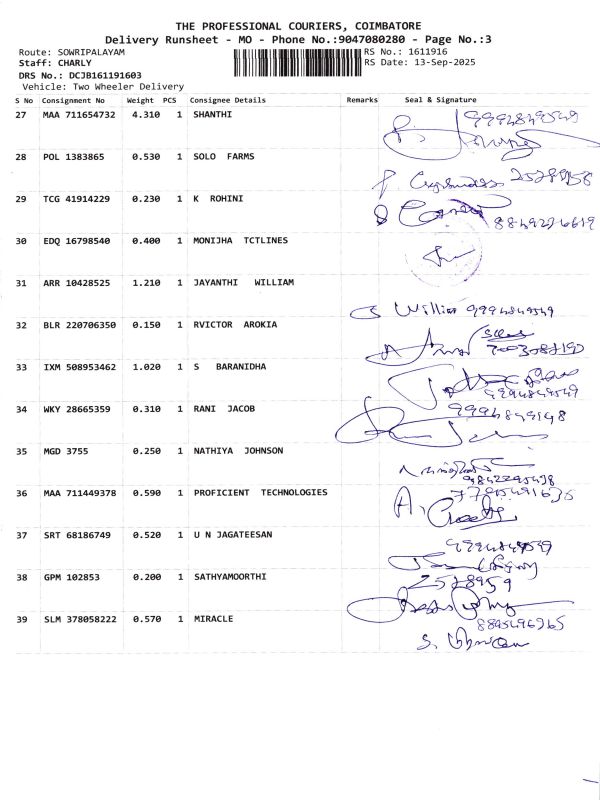 THE PROFESSIONAL COURIERS, COIMBATORE
Delivery Runsheet - MO - Phone No.:9047080280 - Page No.:3
Route: SOWRIPALAYAM RS No.: 1611916
Staff: CHARLY RS Date: 13-Sep-2025
DRS No.: DCJB161191603
Vehicle: Two Wheeler Delivery
S No Consignment No Weight PCS Consignee Details Remarks Seal & Signature
27 MAA 711654732 4.310 1 SHANTHI 9994849549
28 POL 1383865 0.530 1 SOLO FARMS
29 TCG 41914229 0.230 1 K ROHINI
30 EDQ 16798540 0.400 1 MONIJHA TCTLINES
31 ARR 10428525 1.210 1 JAYANTHI WILLIAM
William 9994849549
32 BLR 220706350 0.150 1 RVICTOR AROKIA
33 IXM 508953462 1.020 1 S BARANIDHA
9994849549
34 WKY 28665359 0.310 1 RANI JACOB
35 MGD 3755 0.250 1 NATHIYA JOHNSON
36 MAA 711449378 0.590 1 PROFICIENT TECHNOLOGIES
37 SRT 68186749 0.520 1 U N JAGATEESAN
38 GPM 102853 0.200 1 SATHYAMOORTHI
2578959
39 SLM 378058222 0.570 1 MIRACLE